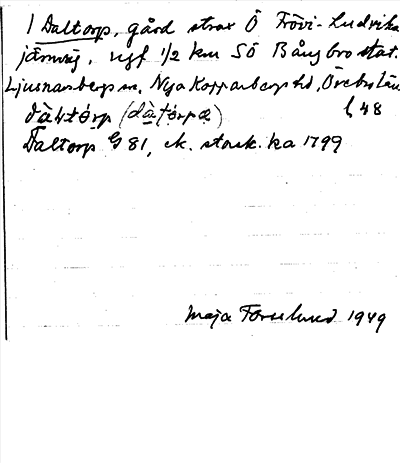 1 Daltorp, gård strax Ö Frövi-Ludvika
järnväg, ungf 1/2 km SÖ Bångbro stat.
Ljusnarsbergs sn, Nya Kopparbergs hd, Örebro län
l 48
Daltorp G 81, ek. stork. ka 1799
Maja Forslund 1949